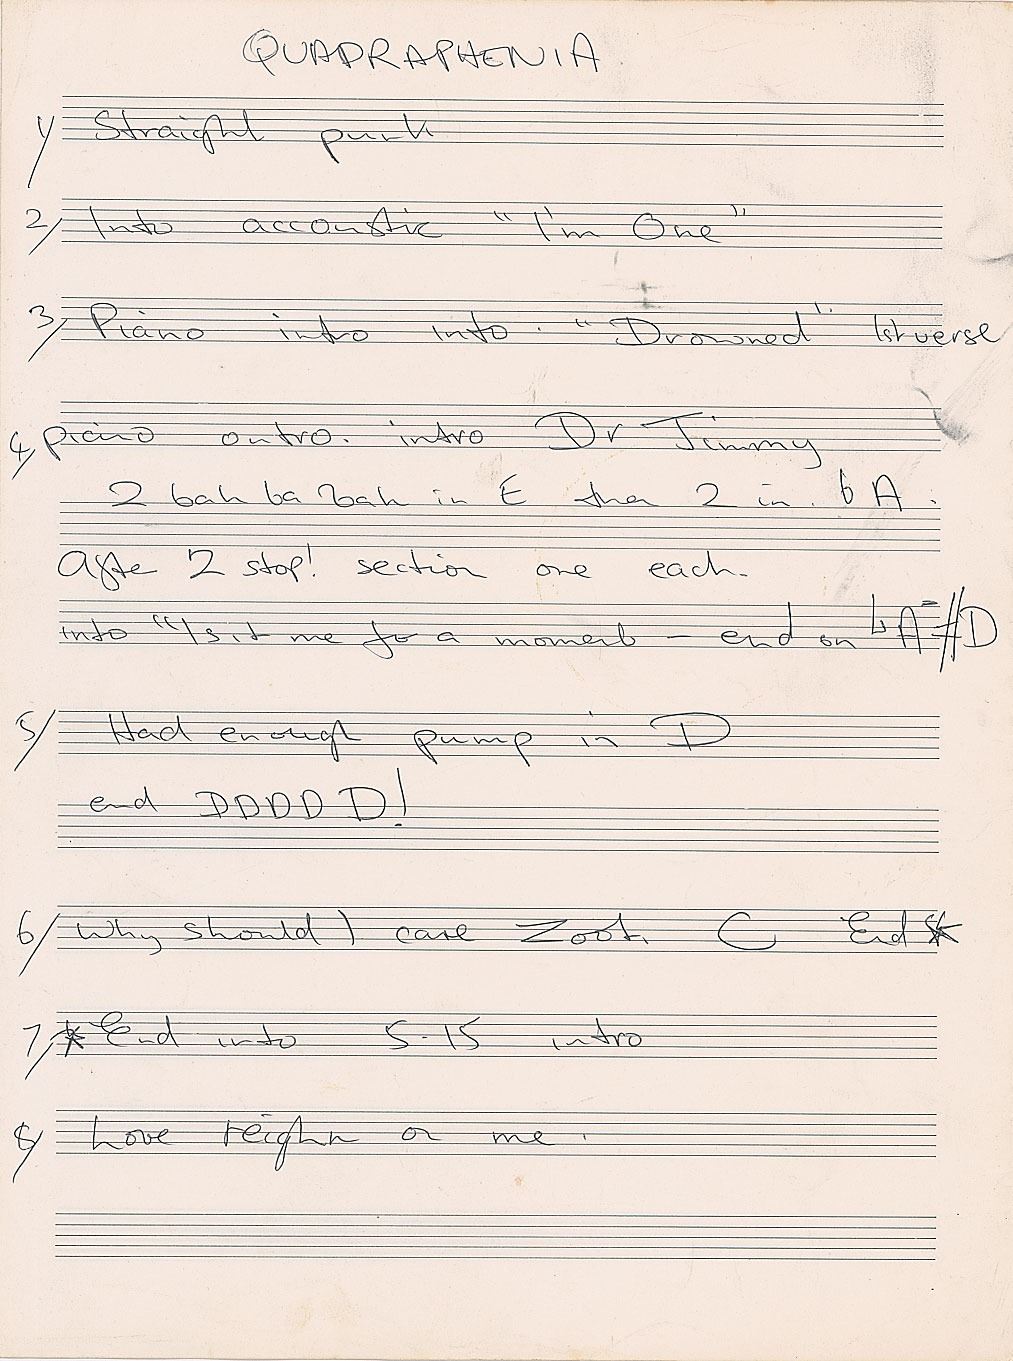 QUADRAPHENIA
1/ Straight punk
2/ Into accoustic "I'm One"
3/ Piano intro into. "Drowned" 1st verse
4/ piano outro. intro Dr Jimmy
2 bah ba bah in E then 2 in. ♭A.
After 2 stop! section one each.
into "Is it me for a moment - end on ♭A=#D
5/ Had enough pump in D
end DDDD D!
6/ Why should I care Zoot. C End *
7/ * End into 5-15 intro
8/ Love reighn or me.